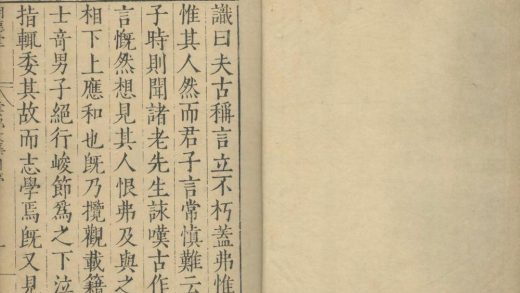 識曰夫古稱言立不朽蓋弗惟
惟其人然而君子言常慎難云
子時則聞諸老先生詠嘆古作
言慨然想見其人恨弗及與之
相下上應和也既乃攬觀載籍
士奇男子絕行峻節爲之下泣
揩輒委其故而志學焉既又見